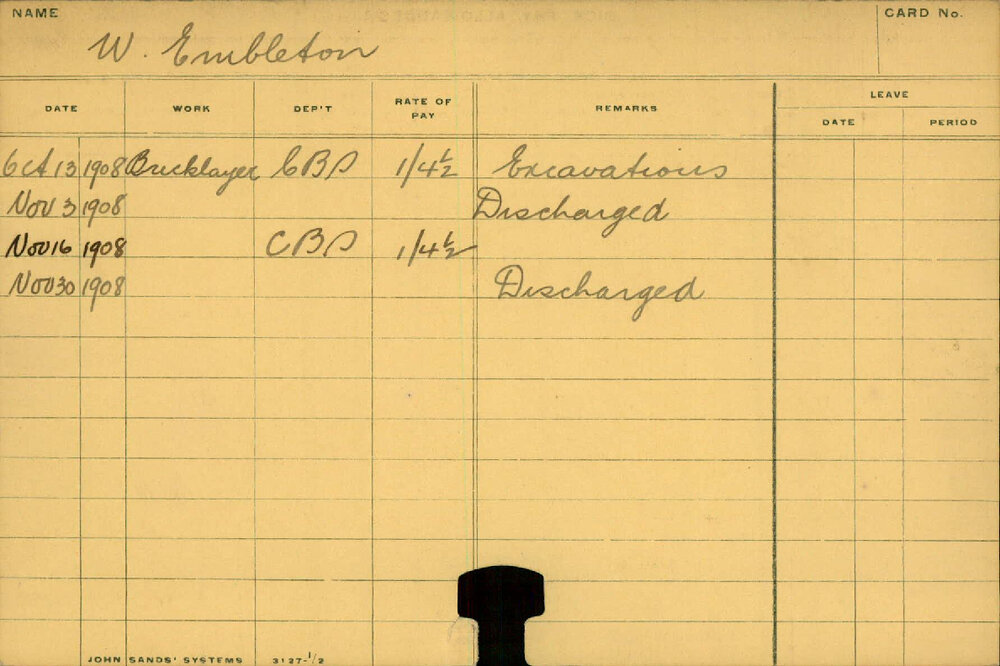 NAME
CARD No.
W. Embleton
DATE WORK DEP'T RATE OF PAY REMARKS LEAVE
DATE PERIOD
Oct 13 1908 Bricklayer CBD 1/4½ Excavations
Nov 3 1908 Discharged
Nov 16 1908 CBD 1/4½
Nov 30 1908 Discharged
JOHN SANDS' SYSTEMS 3127-1/2